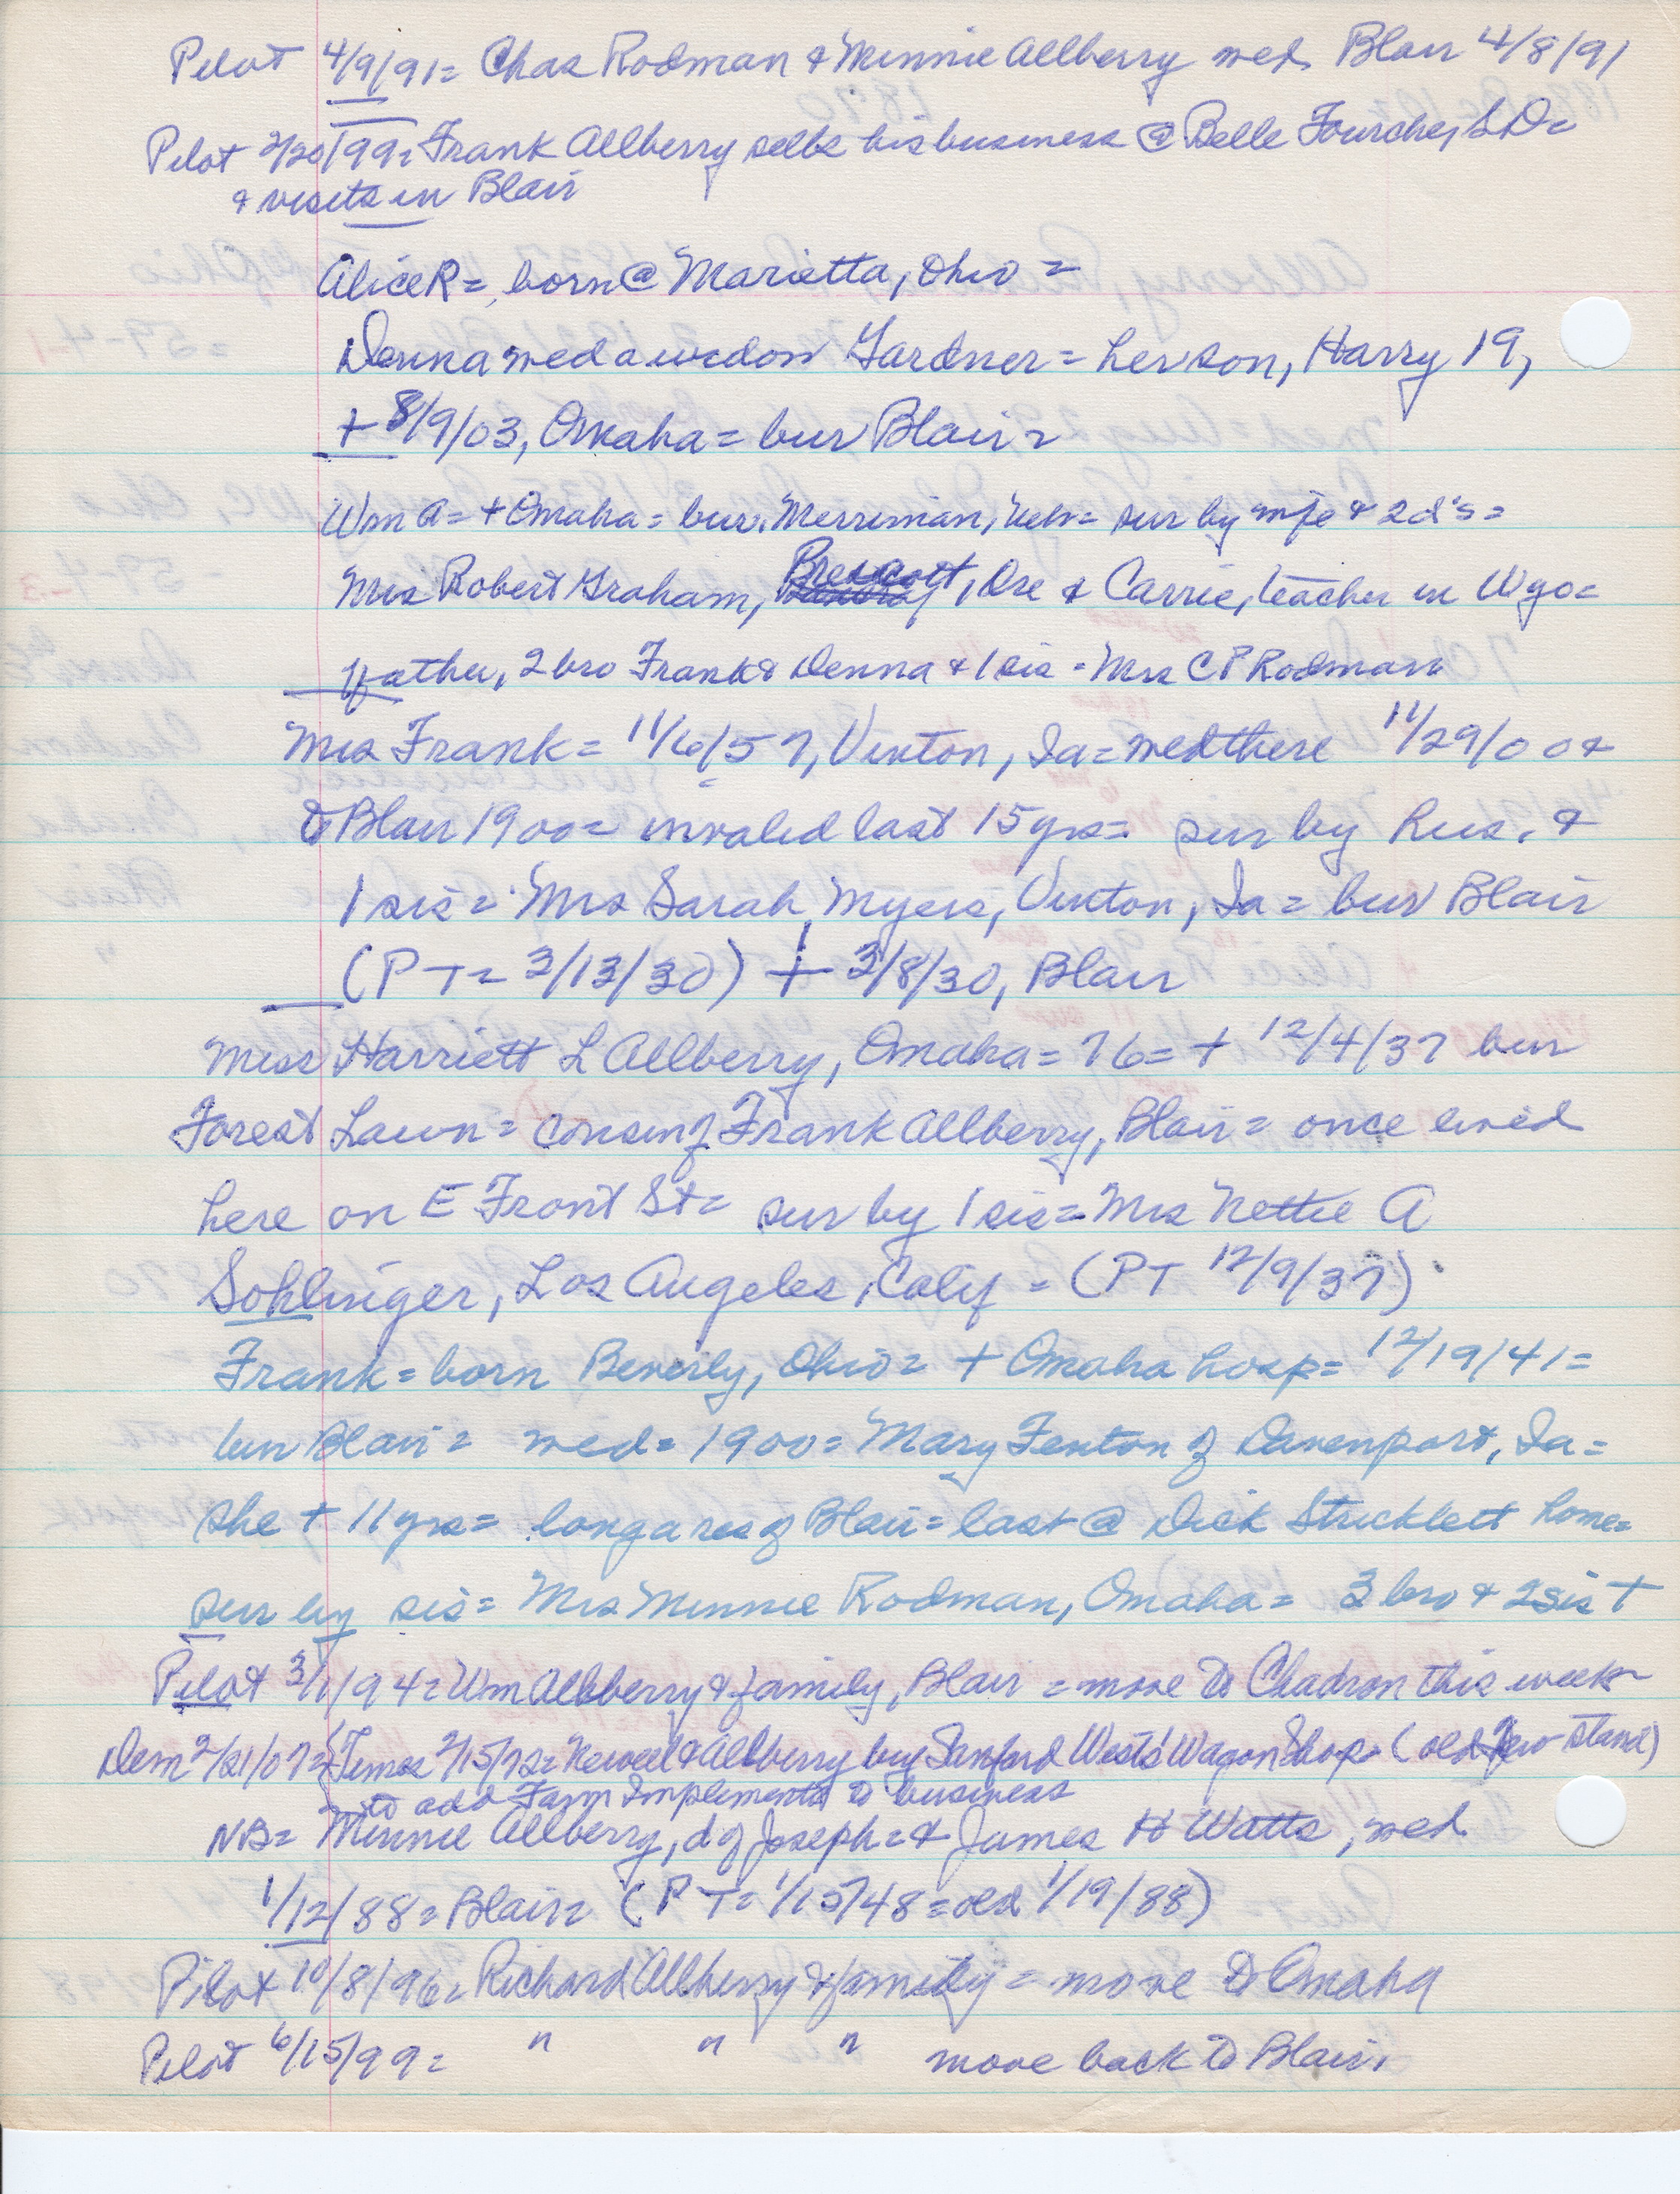 Pilot 4/9/91= Chas Rodman & Minnie Allberry med Blair 4/8/91
Pilot 2/20/99= Frank Allberry sells his business @ Belle Fourche, S D=
& visits in Blair
Alice R= born @ Marietta, Ohio =
Denna med a widow Gardner = her son, Harry 19,
+ 8/9/03, Omaha = bur Blair =
Wm A= + Omaha = bur. Merriman, Neb= sur by wife & 2 d's =
Mrs Robert Graham, Prescott, Ore & Carrie, teacher in Wyo=
father, 2 bro Frank & Denna & 1 sis - Mrs C P Rodman
Mrs Frank = 11/6/57, Vinton, Ia = med there 11/29/00 &
to Blair 1900= invalid last 15 yrs= sur by hus. &
1 sis = Mrs Sarah Myers, Vinton, Ia = bur Blair
(P T= 3/13/30) + 3/8/30, Blair
Miss Harriett L Allberry, Omaha = 76= + 12/4/37 bur
Forest Lawn = cousin of Frank Allberry, Blair = once lived
here on E Front St= sur by 1 sis = Mrs Nettie A
Sohlinger, Los Angeles, Calif = (PT 12/9/37)
Frank = born Beverly, Ohio = + Omaha hosp= 12/19/41=
bur Blair = med = 1900 = Mary Fenton of Davenport, Ia =
she + 11 yrs= long a res of Blair = last @ Dick Stricklett home=
sur by sis = Mrs Minnie Rodman, Omaha = 3 bro & 2 sis +
Pilot 3/1/94= Wm Allberry & family, Blair = move to Chadron this week
Dem 2/21/07= {Times 2/15/72= Newell & Allberry buy Sanford West's Wagon Shop (old stand)
to add Farm Implements to business
NB= Minnie Allberry, d of Joseph = & James H Watts, med
1/12/88= Blair= (P T= 1/15/48 = old 1/19/88)
Pilot 10/8/96= Richard Allberry & family = move to Omaha
Pilot 6/15/99= " " " move back to Blair.